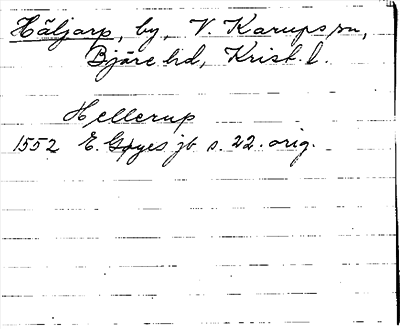 Häljarp, by, V. Karups sn,
Bjäre hd, Krist. l.
Hellerup
1552 E. Gøyes jb s. 22. orig.